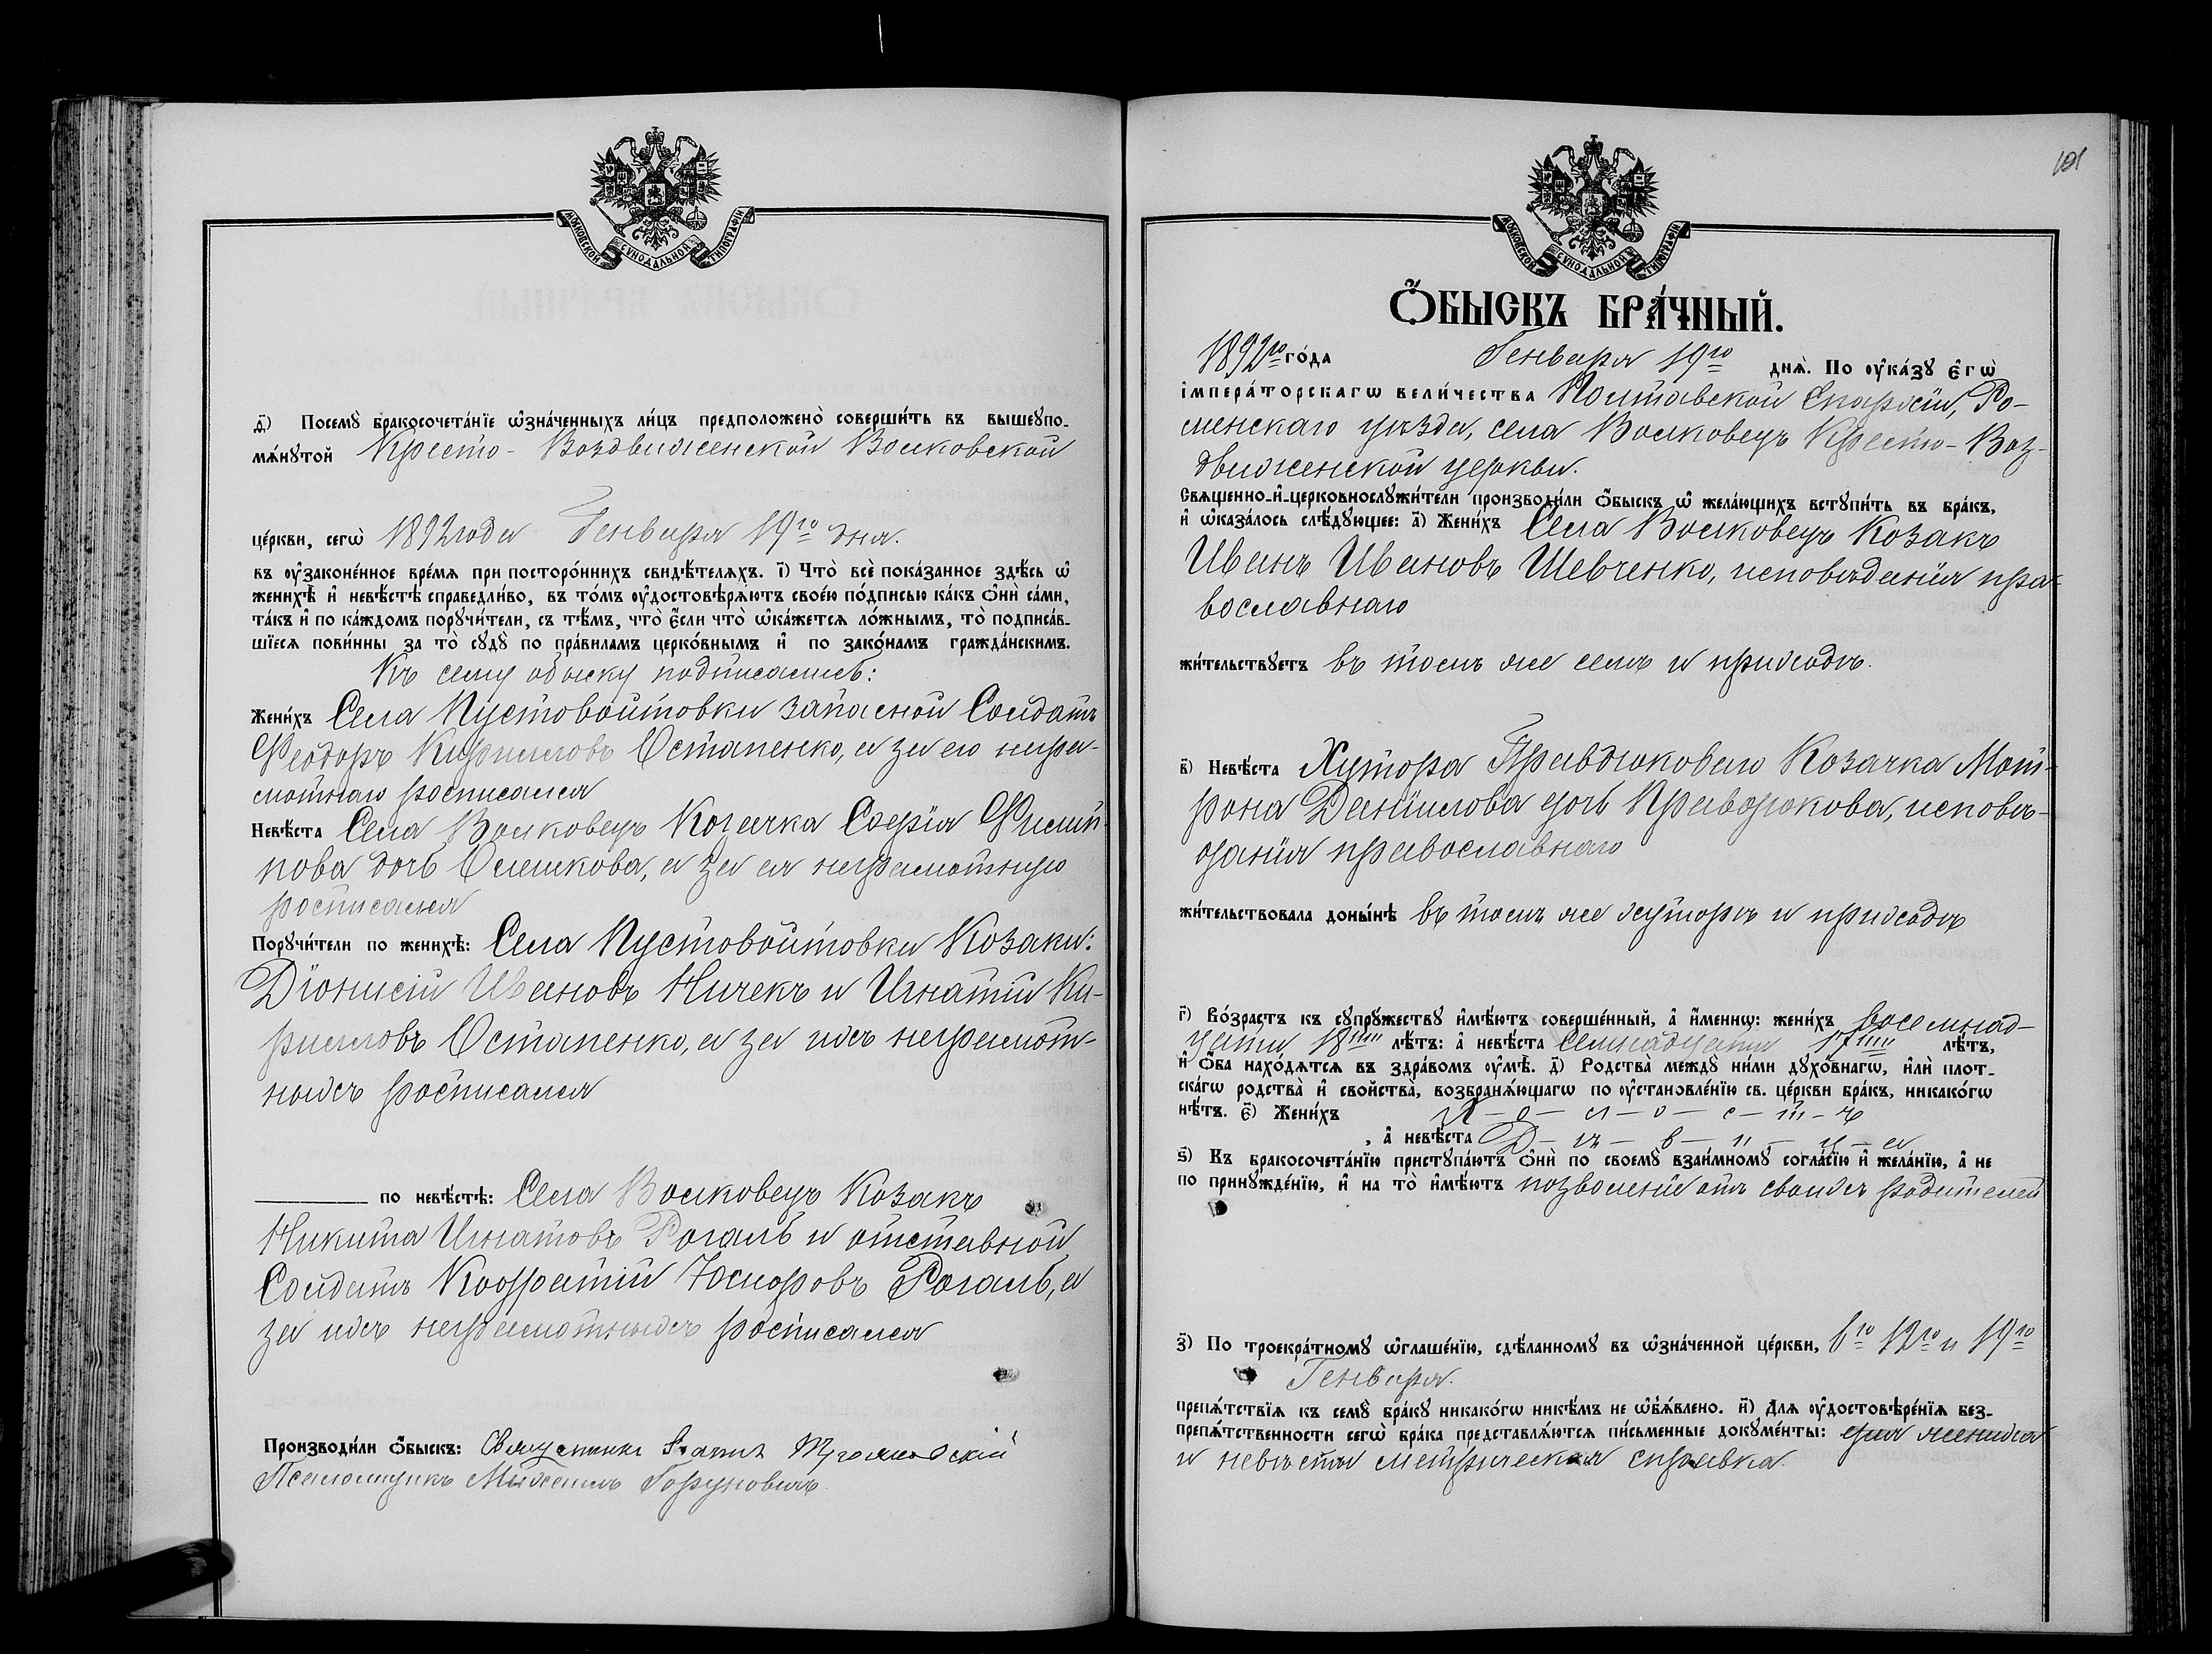 МОСКОВСКОЙ СѴНОДАЛЬНОЙ ТИПОГРАФІИ
д҃) Посемꙋ̀ бракосочета́нїе ѡ҆зна́ченныхъ ли́цъ предположено̀ соверши́ть въ вышеꙋпо-
мѧ́нꙋтой Кресто-Воздвиженской Волковской
це́ркви, сегѡ̀ 1892 года Генваря 19го дня.
въ ᲂу҆законе́нное вре́мѧ при посторо́ннихъ свидѣ́телѧхъ. і҃) Что̀ всѐ пока́занное здѣ́сь ѡ҆
женихѣ̀ и҆ невѣ́стѣ справедли́во, въ то́мъ ᲂу҆достовѣрѧ́ютъ свое́ю по́дписью ка́къ ѻ҆нѝ са́ми,
та́къ и҆ по ка́ждомъ порꙋчи́тели, съ тѣ́мъ, что̀ є҆́сли что̀ ѡ҆ка́жетсѧ ло́жнымъ, то̀ подписа́в-
шїесѧ пови́нны за то̀ сꙋдꙋ̀ по пра́виламъ церко́внымъ и҆ по зако́намъ гражда́нскимъ.
Къ сему обыску подписались:
Жени́хъ Села Пустовойтовки запасной Солдатъ
Феодоръ Кириловъ Остапенко, а за его негра-
мотнаго росписался
Невѣ́ста Села Волковецъ Козачка Софія Филип-
пова дочь Олешкова, а за ея неграмотную
росписался
Порꙋчи́тели по женихѣ̀: Села Пустовойтовки Козаки:
Діонисій Ивановъ Ничекъ и Игнатій Ки-
риловъ Остапенко, а за ихъ неграмот-
ныхъ росписался
по невѣ́стѣ: Села Волковецъ Козакъ
Никита Игнатовъ Рогаль и отставной
Солдатъ Кодратій Рогаль, а
за ихъ неграмотныхъ росписался
Производи́ли ѻ҆́быскъ: Священникъ
Псаломщикъ Михаилъ
101
МОСКОВСКОЙ СѴНОДАЛЬНОЙ ТИПОГРАФІИ
Ѻ҆БЫСКЪ БРА́ЧНЫЙ.
1892го го́да Генваря 19го днѧ̀. По ᲂу҆ка́зꙋ є҆гѡ̀
і҆мпера́торскагѡ вели́чества Полтавской Епархіи, Ро-
менскаго уѣзда, села Волковецъ Кресто-Воз-
движенской церкви.
Свѧщенно-и҆-церковнослꙋжи́тели производи́ли ѻ҆́быскъ ѡ҆ жела́ющихъ встꙋпи́ть въ бра́къ,
и҆ ѡ҆каза́лось слѣ́дꙋющее: а҃) Жени́хъ Села Волковецъ Козакъ
Иванъ Ивановъ Шевченко, исповѣданія пра-
вославнаго
жи́тельствꙋетъ въ томъ же селѣ и приходѣ.
в҃) Невѣ́ста Хутора Правдюковаго Козачка Мот-
рона Даніилова дочь Правдюкова, исповѣ-
данія православнаго
жи́тельствовала доны́нѣ въ томъ же хуторѣ и приходѣ
г҃) Во́зрастъ къ сꙋпрꙋ́жествꙋ и҆мѣ́ютъ соверше́нный, а҆ и҆́меннѡ: жени́хъ восемнад-
цати 18ти лѣ́тъ: а҆ невѣ́ста семнадцати 17ти лѣ́тъ,
и҆ ѻ҆́ба нахо́дѧтсѧ въ здра́вомъ ᲂу҆мѣ̀. д҃) Родства̀ междꙋ̀ ни́ми дꙋхо́внагѡ, и҆лѝ плот-
ска́гѡ родства̀ и҆ сво́йства, возбранѧ́ющагѡ по ᲂу҆становле́нїю св. це́ркви бра́къ, никако́гѡ
нѣ́тъ. є҃) Жени́хъ х-о-л-о-с-т-ъ
, а҆ невѣ́ста Д-ѣ-в-и-ц-а
ѕ҃) Къ бракосочета́нїю пристꙋпа́ютъ ѻ҆нѝ по своемꙋ̀ взаи́мномꙋ согла́сїю и҆ жела́нїю, а҆ не
по принꙋжде́нїю, и҆ на то̀ и҆мѣ́ютъ позволеніе отъ своихъ родителей
з҃) По троекра́тномꙋ ѡ҆глаше́нїю, сдѣ́ланномꙋ въ ѡ҆зна́ченной це́ркви, 6го 12го и 19го
Генваря.
препѧ́тствїѧ къ семꙋ̀ бра́кꙋ никако́гѡ никѣ́мъ не ѡ҆б̾ѧ́влено. и҃) Длѧ ᲂу҆достовѣре́нїѧ без-
препѧ́тственности сегѡ̀ бра́ка представлѧ́ютсѧ пи́сьменные докꙋме́нты: для жениха
и невѣсты метрическая справка.